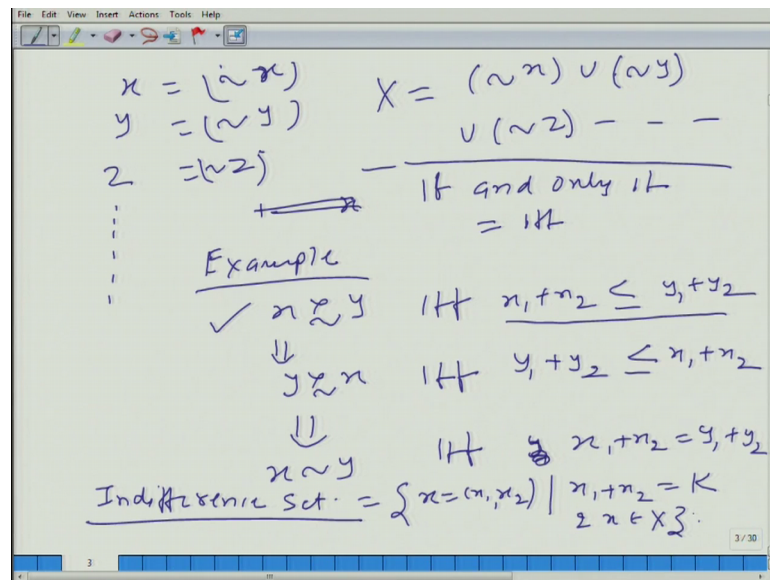 File Edit View Insert Actions Tools Help
x = (~x)
y = (~y)
z = (~z)
X = (~x) ∪ (~y)
∪ (~z) - - -
If and only if
= iff
Example
✓ x ≿ y iff x₁+x₂ ≤ y₁+y₂
⇓
y ≿ x iff y₁+y₂ ≤ x₁+x₂
⇓
x ~ y iff x₁+x₂ = y₁+y₂
Indifference Set. = { x=(x₁,x₂) | x₁+x₂ = K
& x ∈ X }.
3/30
3